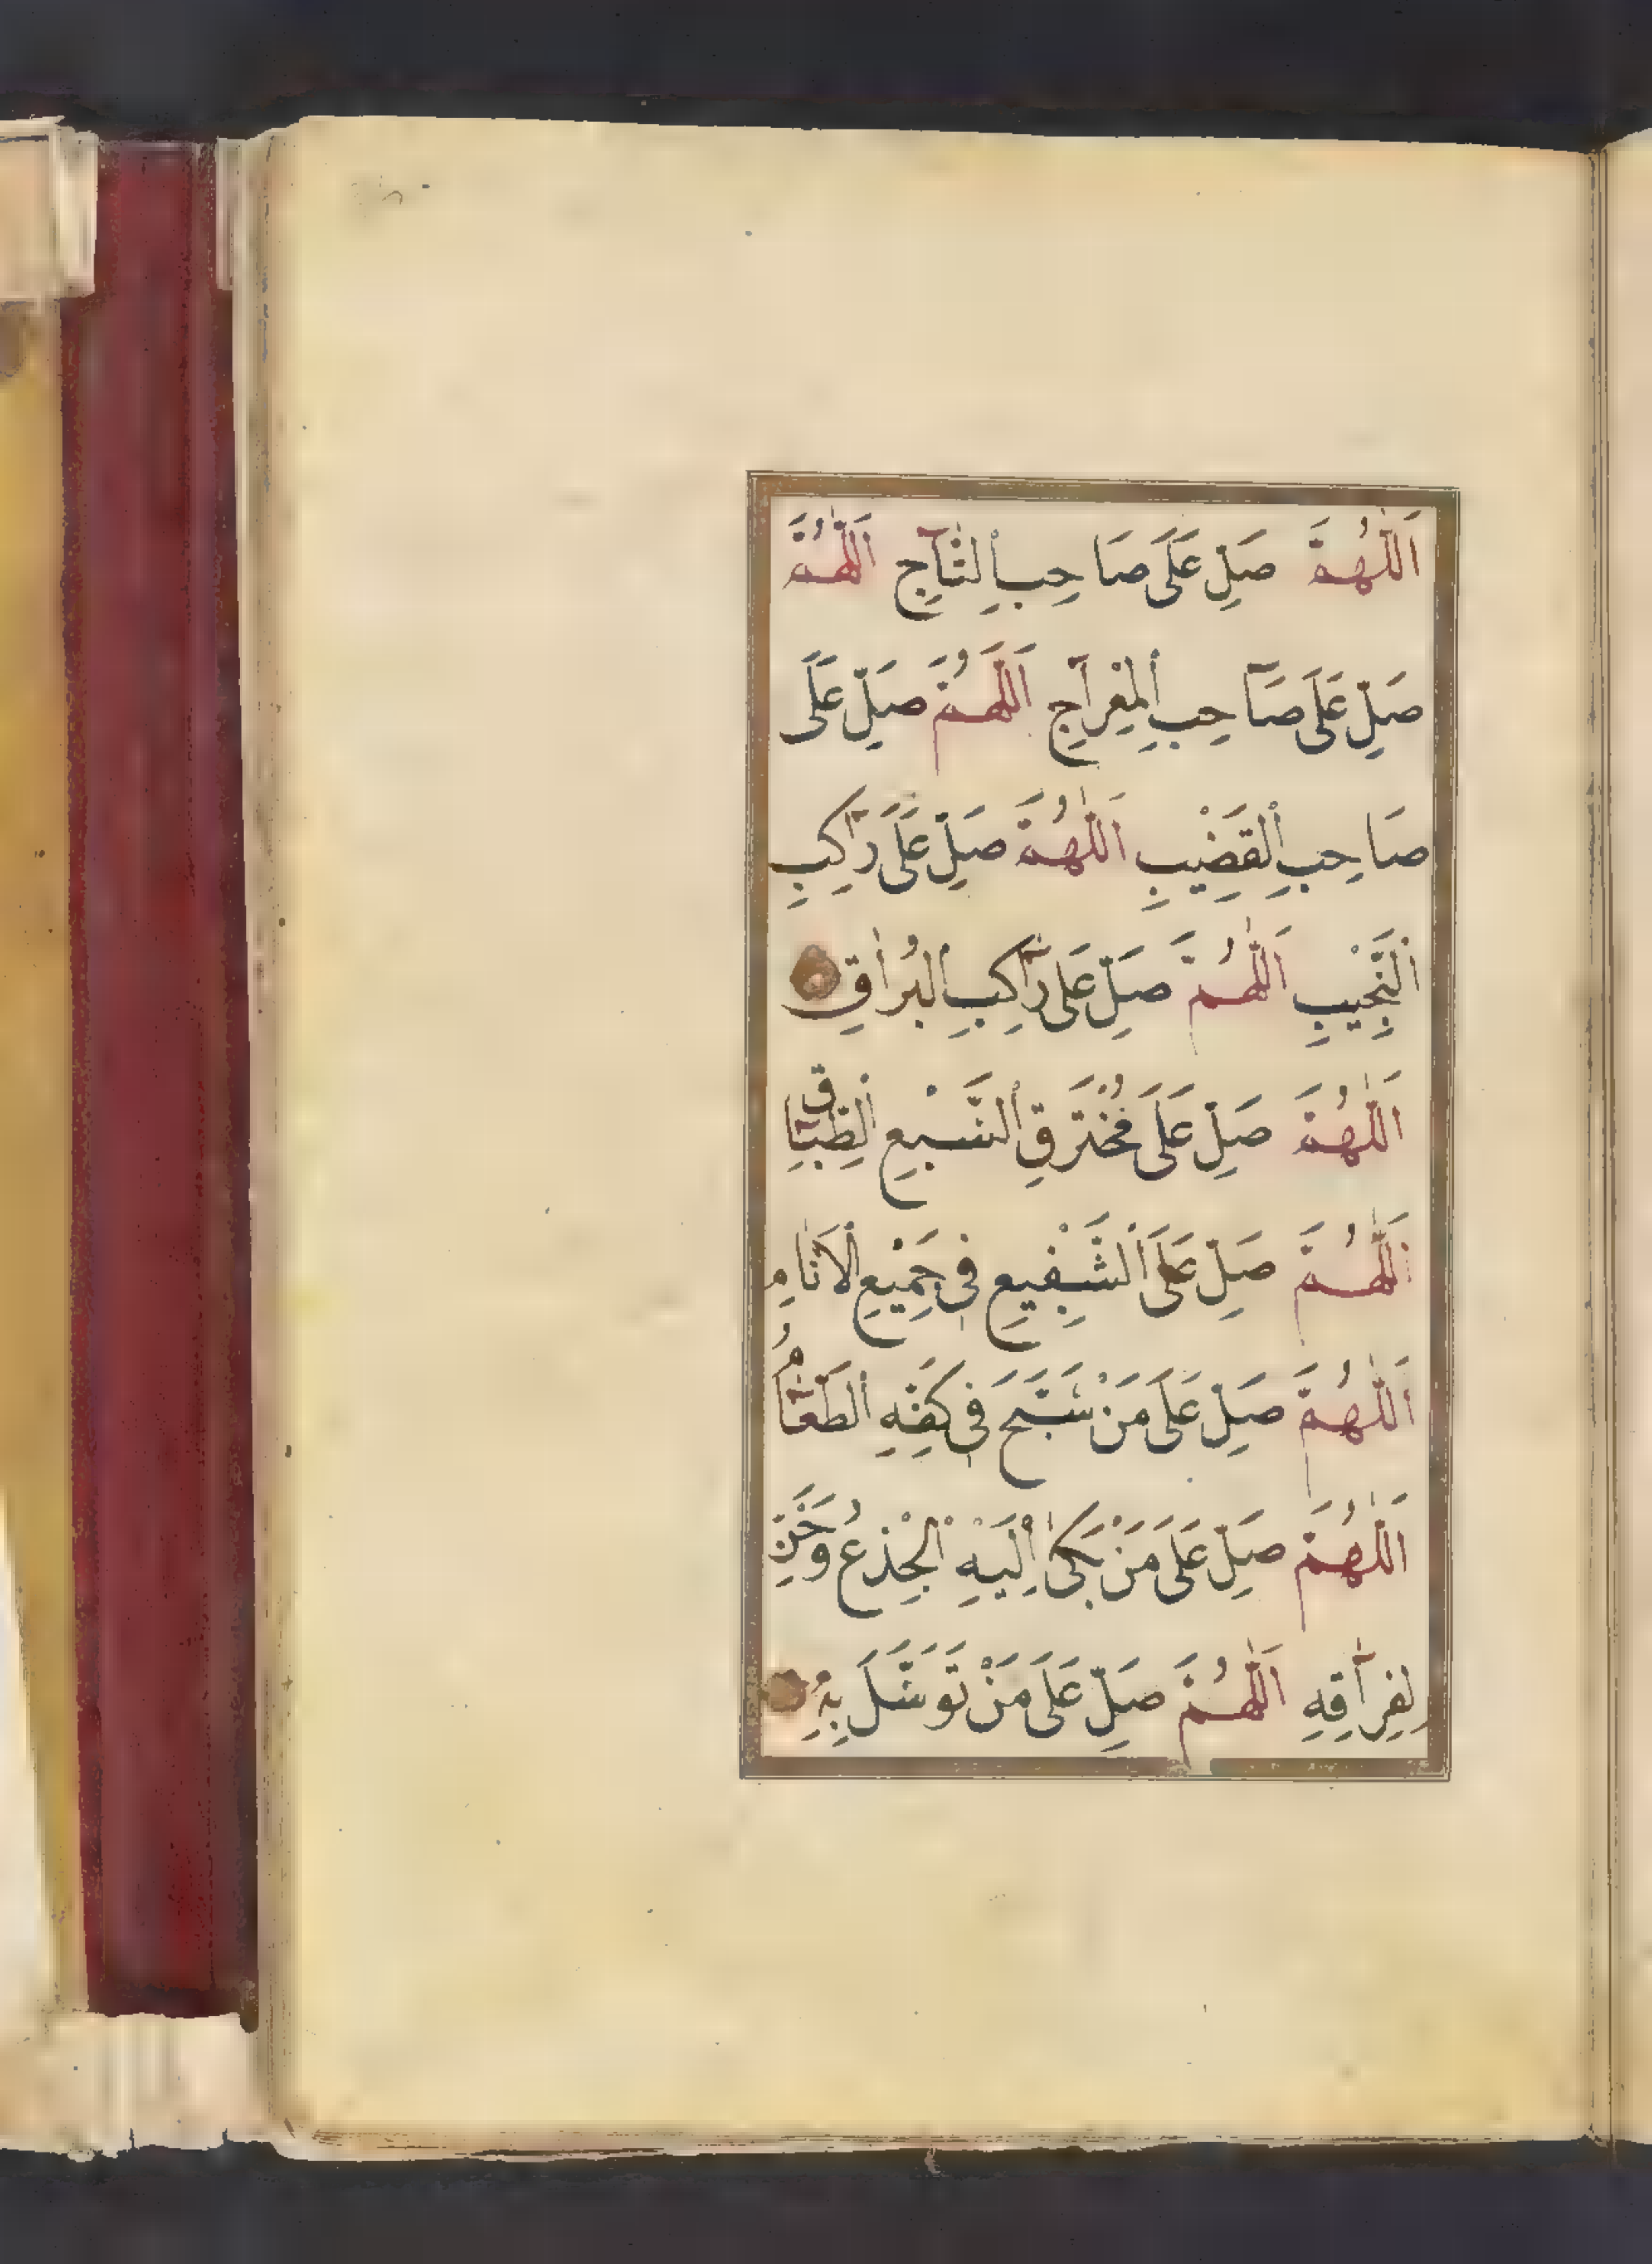 اَللّٰهُمَّ صَلِّ عَلَى صَاحِبِ التَّاجِ اَللّٰهُمَّ
صَلِّ عَلَى صَاحِبِ الْمِعْرَاجِ اَللّٰهُمَّ صَلِّ عَلَى
صَاحِبِ الْقَضِيْبِ اَللّٰهُمَّ صَلِّ عَلَى رَاكِبِ
النَّجِيْبِ اَللّٰهُمَّ صَلِّ عَلَى رَاكِبِ الْبُرَاقِ
اَللّٰهُمَّ صَلِّ عَلَى مُخْتَرَقِ السَّبْعِ الطِّبَاقِ
اَللّٰهُمَّ صَلِّ عَلَى الشَّفِيعِ فِى جَمِيْعِ الْاَنَامِ
اَللّٰهُمَّ صَلِّ عَلَى مَنْ سَبَّحَ فِى كَفِّهِ الطَّعَامُ
اَللّٰهُمَّ صَلِّ عَلَى مَنْ بَكٰى اِلَيْهِ الْجِذْعُ وَحَنَّ
لِفِرَاقِهِ اَللّٰهُمَّ صَلِّ عَلَى مَنْ تَوَسَّلَ بِهِ